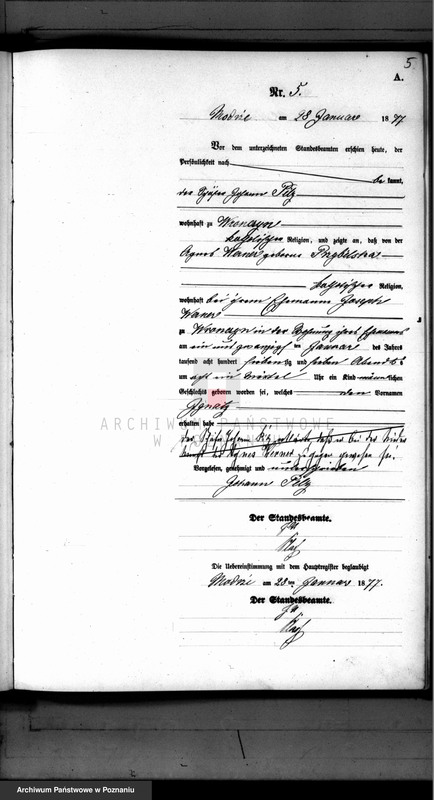 5.
A.
Nr. 5.
Modrze am 28 Januar 1877
Vor dem unterzeichneten Standesbeamten erschien heute, der
Persönlichkeit nach
be kannt,
der Schäfer Johann Pelz
wohnhaft zu Wronczyn
katholischer Religion, und zeigte an, daß von der
Agnes Werner geborene
katholischer Religion,
wohnhaft bei ihrem Ehemann Joseph
Werner
zu Wronczyn in der Wohnung ihres Ehemanns
am ein und zwanzigsten Januar des Jahres
tausend acht hundert siebenzig und sieben Abends
um acht ein viertel Uhr ein Kind männlichen
Geschlechts geboren worden sei, welches den Vornamen
Ignatz
erhalten habe
der Schäfer Johann Pelz erklärte, daß er bei der Nieder
kunft der Agnes Werner zugegen gewesen sei.
Vorgelesen, genehmigt und unterschrieben
Johann Pelz
Der Standesbeamte.
Die Uebereinstimmung mit dem Hauptregister beglaubigt
Modrze am 28ten Januar 1877.
Der Standesbeamte.
ARCHIWUM PAŃSTWOWE
W
Archiwum Państwowe w Poznaniu